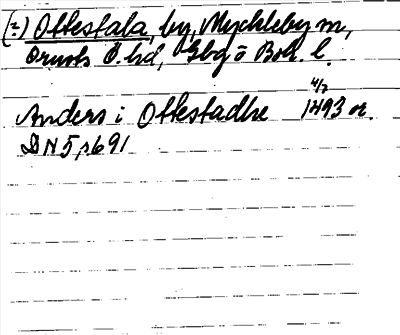 (:) Ottestala, by, Myckleby sn,
Orusts Ö. hd, Gbg o Boh. l.
4/7
Anders i Ottestadhe 1493 or.
DN 5, s 691